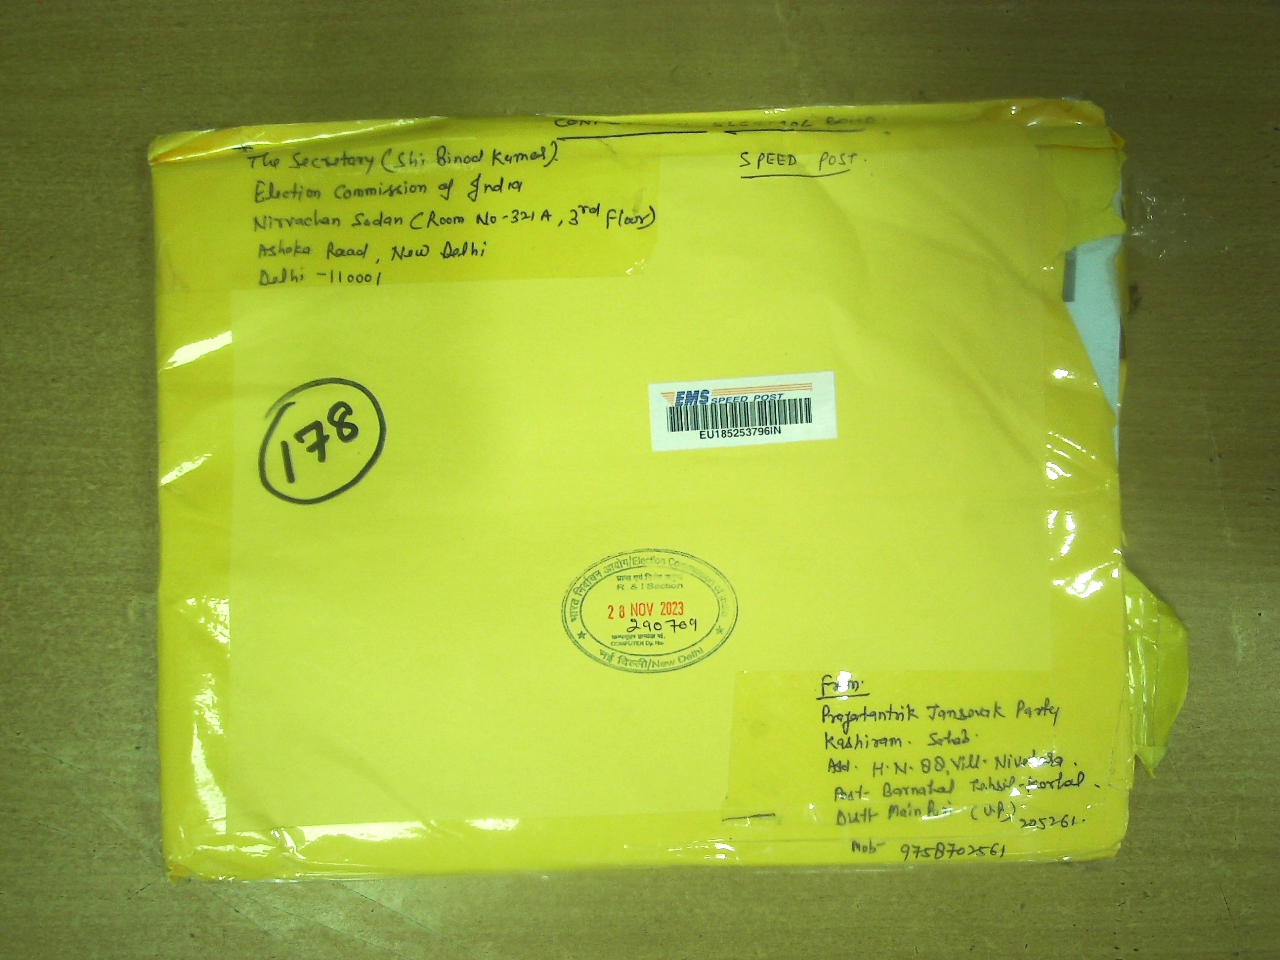 ELECTORAL BOND
The Secretary (Shri Binod Kumar).
SPEED POST.
Election Commission of India
Nirvachan Sadan (Room No-321A, 3rd Floor)
Ashoka Raad, New Delhi
Delhi - 110001
178
EMS SPEED POST
EU185253796IN
भारत निर्वाचन आयोग/Election Commission of India
R & I Section
28 NOV 2023
290709
COMPUTER Dy. No.
नई दिल्ली/New Delhi
From.
Prajatantrik Jansevak Party
Kashiram.
Add. H.N. 88, Vill-
Post- Barnahal Tahsil-
Distt MainPuri (U.P) 205261.
Mob- 9758702561